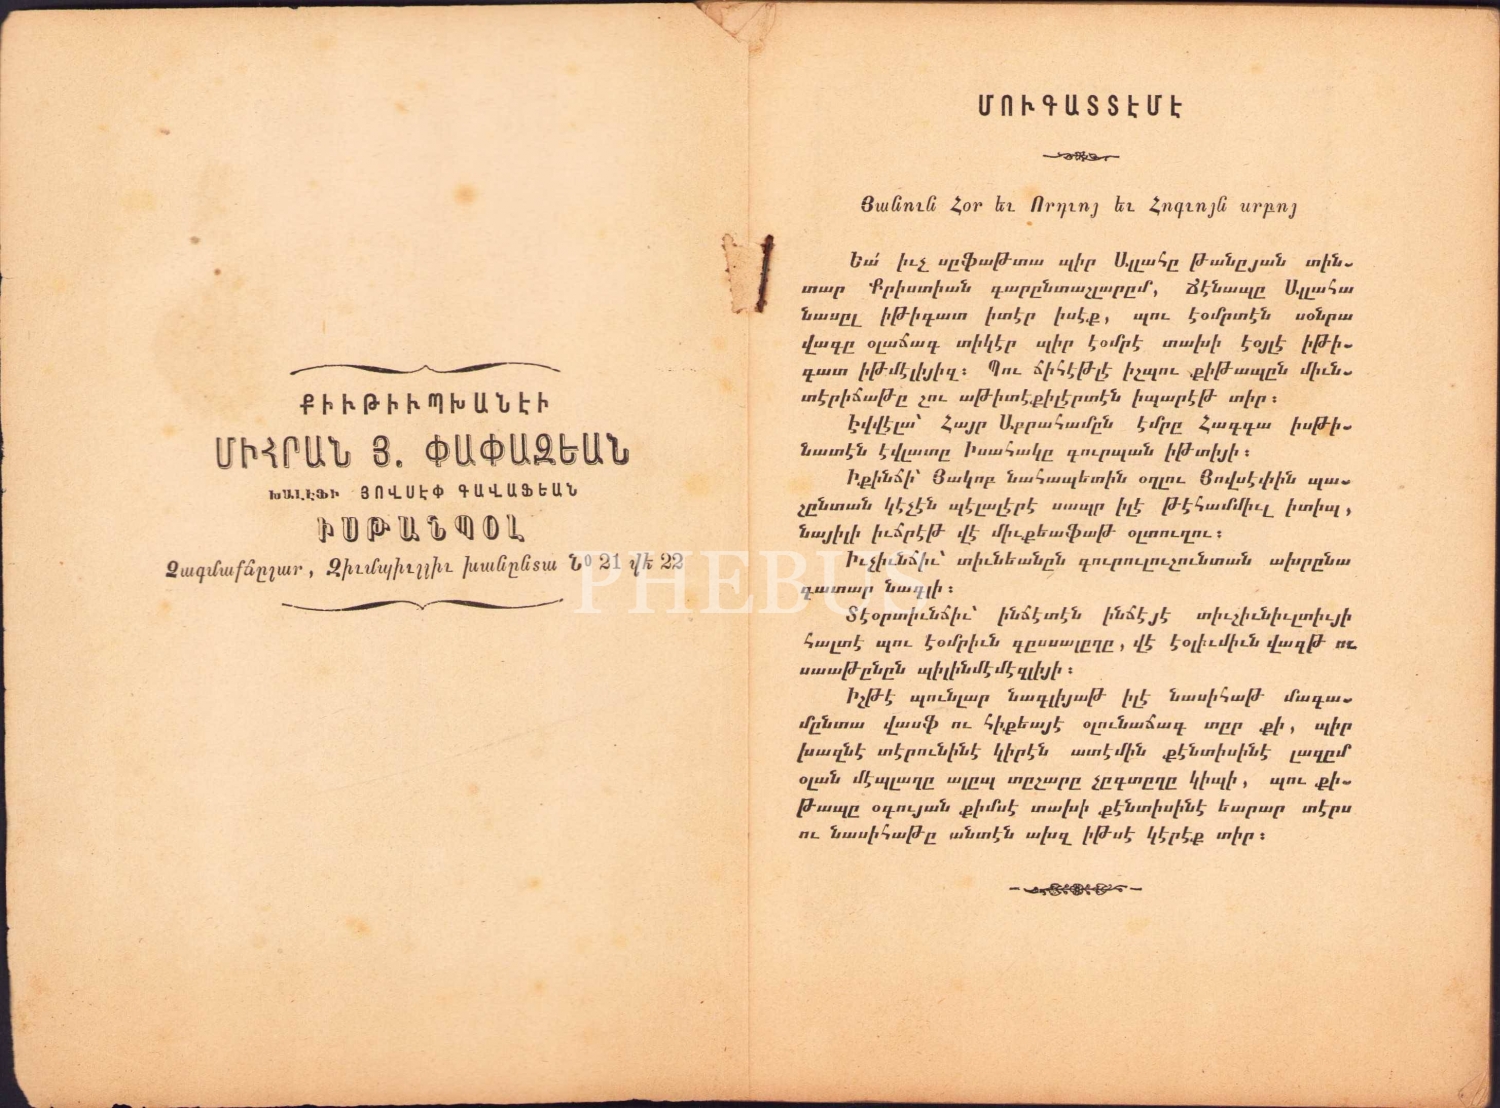 ՔԻՒԹԻՒՊԽԱՆԷԻ
ՄԻՀՐԱՆ Յ. ՓԱՓԱԶԵԱՆ
ԽԱԼԷՖԻ ՅՈՎՍԷՓ ԳԱՎԱՖԵԱՆ
ԻՍԹԱՆՊՕԼ
Չագմաքճըլար, Զիւմպիւլլիւ խանընտա No 21 վե 22
ՄՈՒԳԱՏՏԷՄԷ
Յանուն Հօր եւ Որդւոյ եւ Հոգւոյն սրբոյ
Եա՛ իւչ սըֆաթտա պիր Ալլահը թանըյան տին-
տար Քրիստիան գարընտաշլարըմ, Ճէնապը Ալլահա
նասըլ իթիգատ իտէր իսէք, պու էօմրտէն սօնրա
վագը օլաճագ տիկէր պիր էօմրէ տախի էօյլէ իթի-
գատ իթմէլիյիզ։ Պու ճիհէթլէ իշպու քիթապըն միւն-
տէրիճաթը շու աթիտէքիլէրտէն իպարէթ տիր։
Էվվէլա՝ Հայր Աբրահամըն էմրը Հագգա իսթի-
նատէն էվլատը Իսահակը գուրպան իթտիյի։
Իքինճի՝ Յակոբ նահապետին օղլու Յովսէփին պա-
շընտան կէչէն պէլալէրէ սապր իլէ թէհամմիւլ իտիպ,
նայիլի իւճրէթ վէ միւքեաֆաթ օլտուղու։
Իւչիւնճիւ՝ տիւնեանըն գուրուլուշունտան ախրընա
գատար նագլի։
Տէօրտիւնճիւ՝ ինճէտէն ինճէյէ տիւշիւնիւլտիւյի
հալտէ պու էօմրիւն գըսսալըղը, վէ էօլիւմիւն վագթ ու
սաաթընըն պիլինմէմէզլիյի։
Իշթէ պունլար նագլիյաթ իլէ նասիհաթ մագա-
մընտա վասֆ ու հիքեայէ օլունաճագ տըր քի, պիր
խազնէ տէրունինէ կիրէն ատէմին քէնտիսինէ լազըմ
օլան մէպլաղը ալըպ տըշարը չըգտըղը կիպի, պու քի-
թապը օգույան քիմսէ տախի քէնտիսինէ եարար տէրս
ու նասիհաթը անտէն ախզ իթսէ կէրէք տիր։
PHEBUS